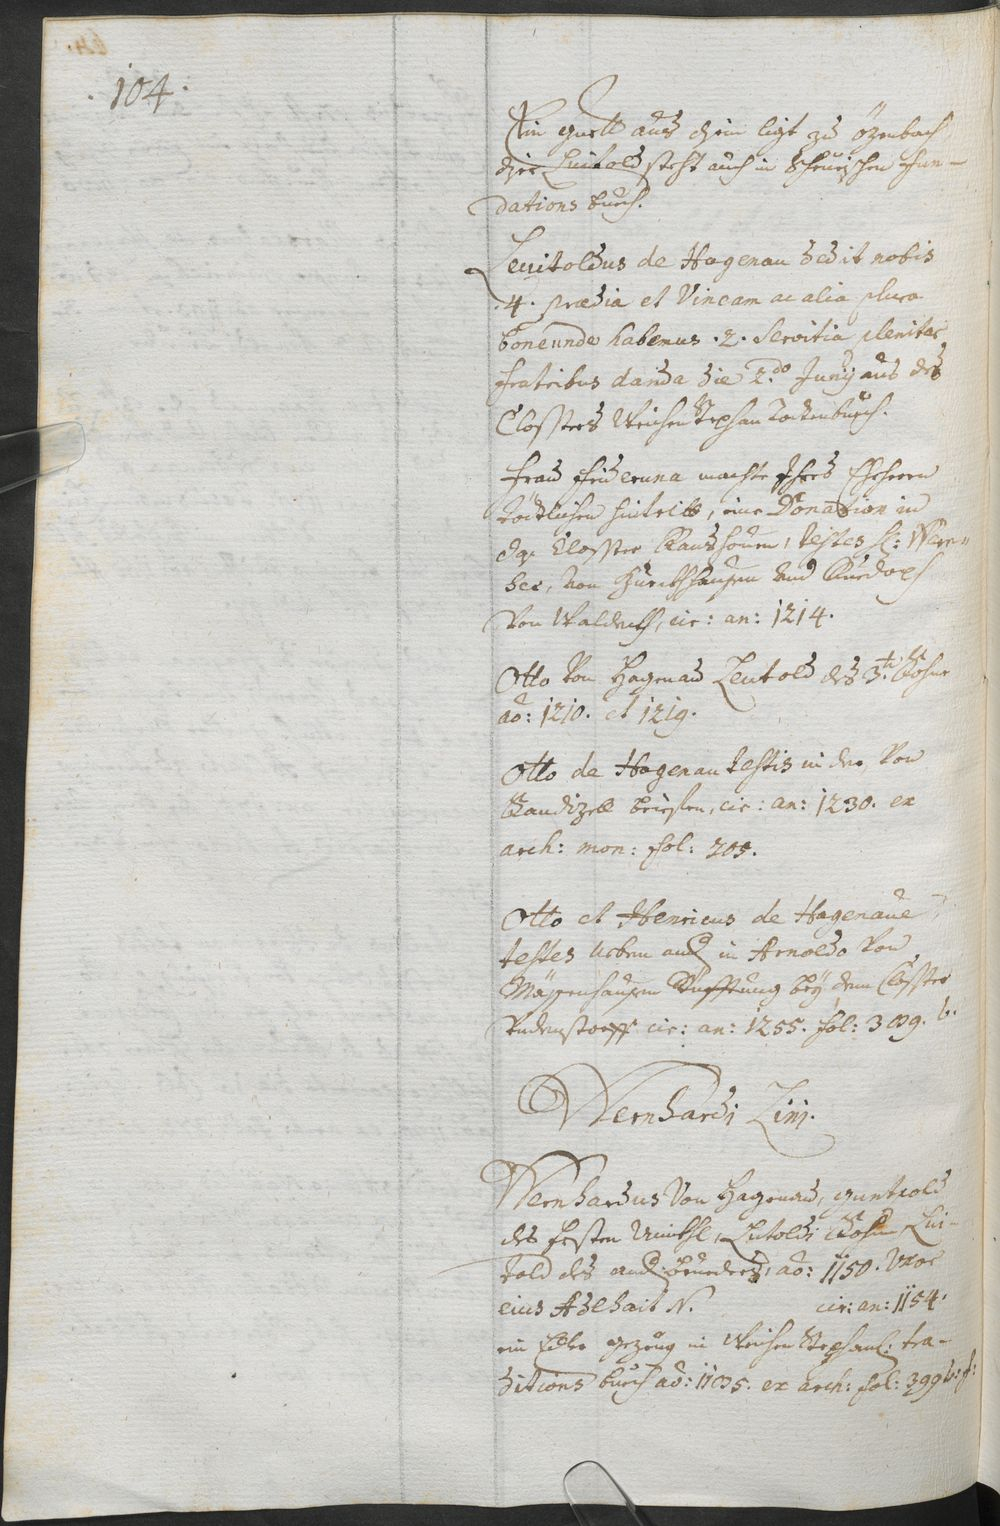 . 104 .
Ein quell aus dem ligt zu Özenbach
dier Luitold steht auch in Scheurischen Fun-
dations buech.
Leuitoldus de Hagenau dedit nobis
.4. prædia et Vineam ac alia plura
bona unde habemus .2. Servitia pleniter
fratribus danda die 2.do Junij aus des
Closters Weichen Stephan Todtenbuech.
Frau Frideruna machte Ihres Eheherrn
tödtlichen hintritt, eine Donation in
Closter Ranshouen, testes H: Wern-
her, von und Ruedoph
Von Waldeckh, cir: an: 1214.
Otto Von Hagenau Leutold des 3.t Sohne
aō: 1210. et 1219.
Otto de Hagenau testis in der Von
Kandizell briefen, cir: an: 1230. ex
arch: mon: fol: 205.
Otto et Henricus de Hagenaue
testes neben and in Arnoldo Von
Mässenhausen Stüfftung bey dem Closter
Understorff cir: an: 1255. fol: 309. b.
Wernhardj Linj.
Wernhardus Von Hagenau, guntold
des Ersten Leutoldi Sohn Lui-
told des and brueders, aō: 1150. Vxor
eius Adlhait N. cir: an: 1154.
ein Edler gezeug in Weichen Stephanl: tra-
ditions buech aō: 1135. ex arch: fol: 399 b: f: